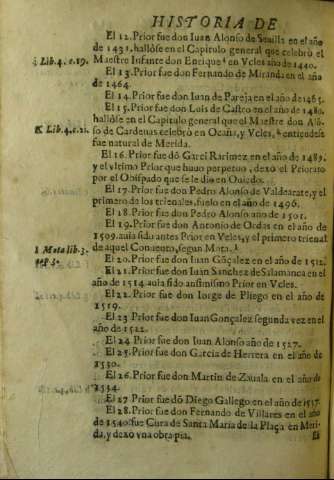 HISTORIA DE
El 12. Prior fue don Iuan Alonso de Seuilla en el año
de 1431. hallòse en el Capitulo general que celebrò el
i Lib.4. c.19. Maestre Infante don Enrique i en Vcles año de 1440.
El 13. Prior fue don Fernando de Miranda en el año
de 1464.
El 14. Prior fue don Iuan de Pareja en el año de 1465.
El 15. Prior fue don Luis de Castro en el año de 1480.
hallóse en el Capitulo general que el Maestre don Alõ-
K Lib.4. c.21. so de Cardenas celebrò en Ocaña, y Vcles, k entiendese
fue natural de Merida.
El 16. Prior fue dõ Garci Ramirez en el año de 1489.
y el vltimo Prior que huuo perpetuo, dexò el Priorato
por el Obispado que se le dio en Ouiedo.
El 17. Prior fue don Pedro Alonso de Valdearaze, y el
primero de los trienales, fuelo en el año de 1496.
El 18. Prior fue don Pedro Alonso año de 1501.
El 19. Prior fue don Antonio de Ordas en el año de
1509. auia sido antes Prior en Vcles, y el primero trienal
l Mota lib.3. de aquel Conuento, segun Mota. l
cap 5.
El 20. Prior fue don Iuan Gõçalez en el año de 1512.
El 21. Prior fue don Iuan Sanchez de Salamanca en el
año de 1514. auia sido ansimismo Prior en Vcles.
El 22. Prior fue don Iorge de Pliego en el año de
1519.
El 23 Prior fue don Iuan Gonçalez segunda vez en el
año de 1522.
El 24 Prior fue don Iuan Alonso año de 1527.
El 25. Prior fue don Garcia de Herrera en el año de
1530.
El 26. Prior fue don Martin de Zauala en el año de
1534.
El 27 Prior fue dõ Diego Gallego en el año de 1537.
El 28. Prior fue don Fernando de Villares en el año
de 1540. fue Cura de Santa Maria de la Plaça en Meri-
da, y dexò vna obra pia.
El